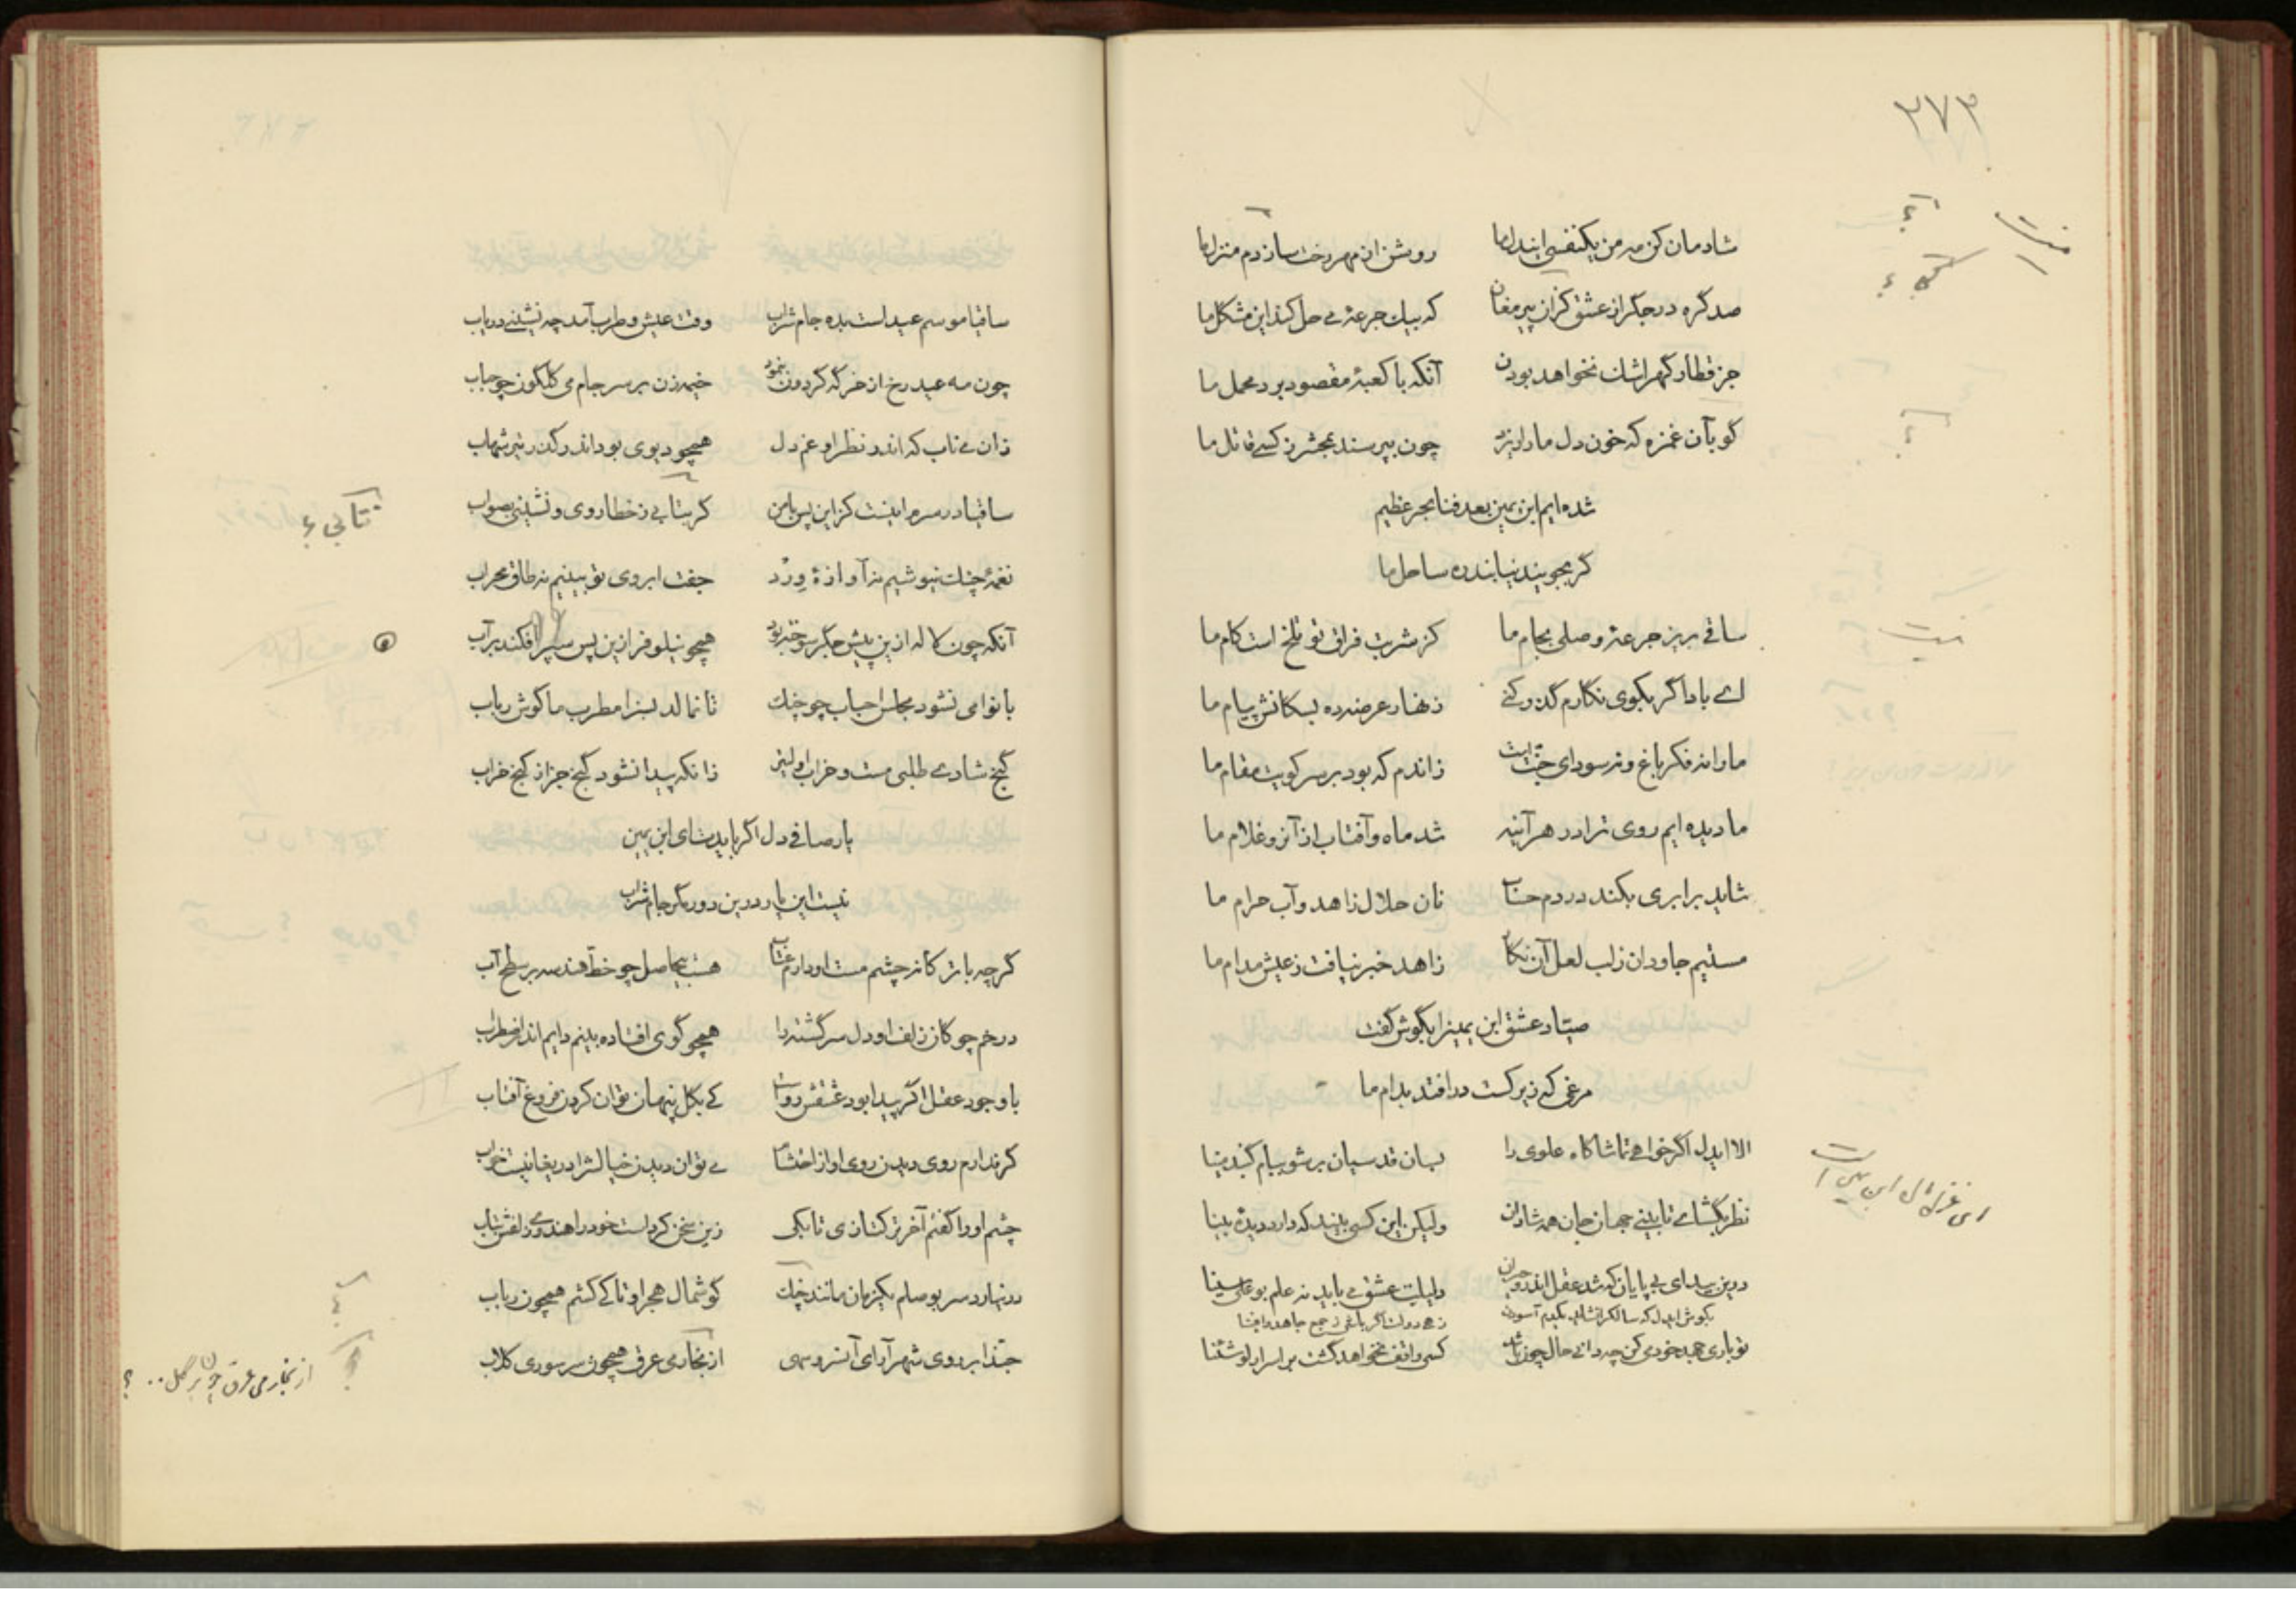 ۲۷۳
شادمان کن مه من یکنفسی این دل ما روشن از مهر رخت ساز دم منزل ما
صد گره در جگر از عشق کزان پیر مغان که بیک جرعهٔ می حل کند این مشکل ما
جز قطار گهر اشک نخواهد بودن آنکه با کعبهٔ مقصود برد محمل ما
گو بآن غمزه که خون دل ما را ریزد چون بپرسند بمحشر ز کسی قاتل ما
شده ایم ابن یمین بعد فنا بحر عظیم
گر بجویند نیابند ره ساحل ما
ساقی بریز جرعهٔ وصلی بجام ما کز شربت فراق تو تلخ است کام ما
ای باد اگر بکوی نگارم گذر کنی زنهار عرضه ده بسگانش پیام ما
ما را نه فکر باغ و نه سودای جنت است زاندم که بود بر سر کویت مقام ما
ما دیده ایم روی ترا در هر آینه شد ماه و آفتاب از آنرو غلام ما
شاید برابری بکند در دم حساب نان حلال زاهد و آب حرام ما
مستیم جاودان ز لب لعل آن نگار زاهد خبر نیافت ز عیش مدام ما
صیاد عشق ابن یمین را بگوش گفت
مرغی که زیرکست در افتد بدام ما
الا ایدل اگر خواهی تماشاگاه علوی را بسان قدسیان بر شو ببام گنبد مینا
نظر بگشای تا بینی جهان جان همه شادان ولیکن این کسی بیند که دارد دیدهٔ بینا
درین بیدای بی پایان که شد عقل اندرو حیران دلیلت عشق می باید نه علم بو علی سینا
بکوش ایدل که سالک را نشاید یکدم آسودن
تو باری جهد خودی کن چه دانی حال چون باشد کسی واقف نخواهد گشت بر اسرار
این غزل ابن یمین است
ساقیا موسم عید است بده جام شراب وقت عیش و طرب آمد چه نشینی دریاب
چون مه عید رخ از خرگه گردون بنمود خیمه زن بر سر جام می گلگون چو حباب
زان می ناب که اندر نظر او غم دل همچو دیوی بود اندر گذر تیر شهاب
ساقیا در سرم اینست کزین پس با من گر بتابی ز خطا روی و نشینی بصواب
تتابی ؟
نغمهٔ چنگ نیوشیم نه آوازهٔ ورد جفت ابروی تو بینیم نه طاق محراب
آنکه چون لاله ازین پیش جگر سوخته بود همچو نیلوفر ازین پس سپر افکند بر آب
با نوا می نشود مجلس احباب چو چنگ تا نمالد بسزا مطرب ما گوش رباب
گنج شادی طلبی مست و خراب اولیتر زانکه پیدا نشود گنج جز از کنج خراب
یار صافی دل اگر بایدت ای ابن یمین
نیست این یار درین دور مگر جام شراب
گرچه با ترکانه چشم مست او دارم عتاب هست بیحاصل چو خط هندسه بر سطح آب
در خم چوگان زلف او دل سرگشته را همچو گوی افتاده بینم دایم اندر اضطراب
با وجود عقل اگر پیدا بود عشقش رواست کی بگل پنهان توان کردن فروغ آفتاب
گر ندارم روی دیدن روی او از احتشام می توان دیدن خیالش را دریغا نیست خواب
چشم او را گفتم آخر ترکتازی تا بکی زین سخن کردست خود را هندوی زلفش بتاب
در نیارد سر بوصلم یکزمان مانند چنگ گوشمال هجر او تا کی کشم همچون رباب
حبذا بر روی شهر آرای آن سرو سهی از بخار می عرق همچون سر سوری گلاب
از بخار می عرق چون بر گل .. ؟